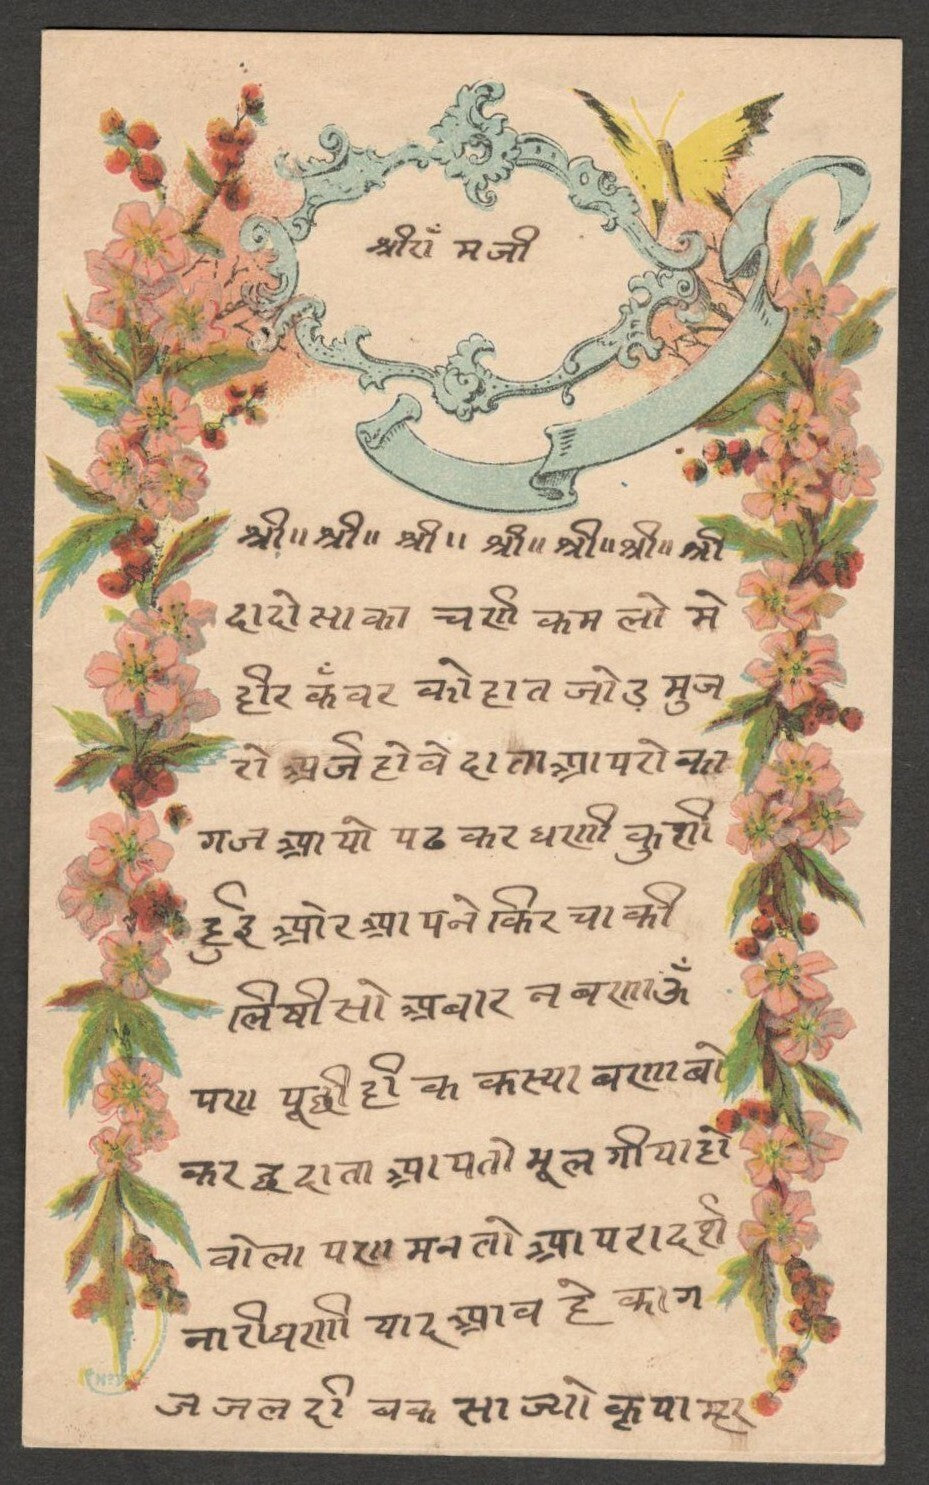 श्रीराँ मजी
श्री॥ श्री॥ श्री॥ श्री॥ श्री॥ श्री॥ श्री
दादोसाका चर्ण कमलो मे
हीर कँवर को हात जोड़ मुज
रो अर्ज होवे दाता आपरो का
गज आयो पढ कर घणी कुशी
हुई ओर आपने किर चाकी
लिषी सो अबार न बणाऊँ
पण पूछी ही क कस्या बणाबो
कर छ दाता आपतो भूल गीया हो
वोला पण मन तो आपरा दर्श
नारी घणी याद आव हे काग
ज जलदी बक साज्यो कृपा